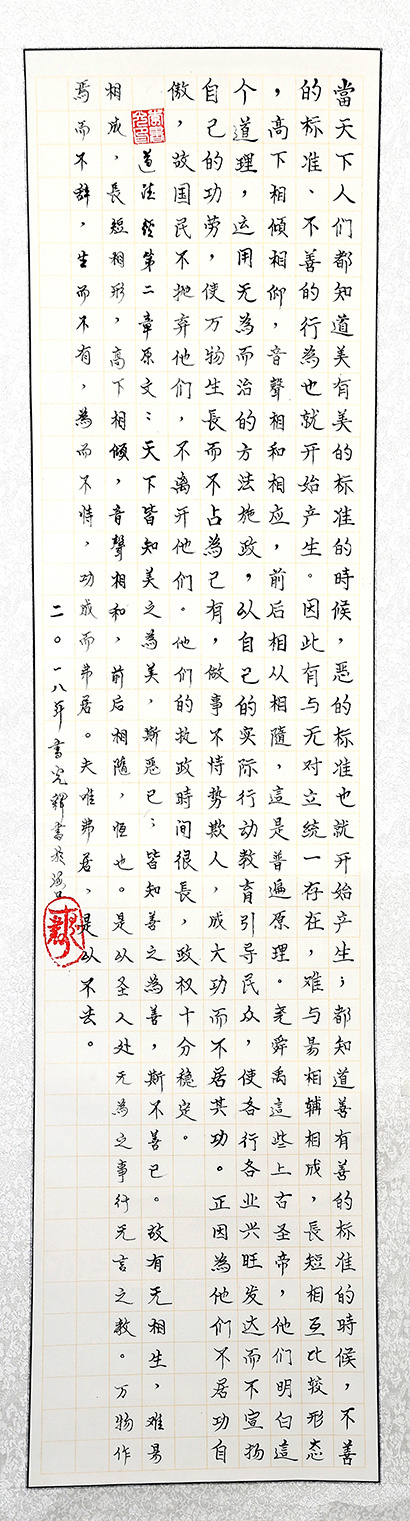 當天下人们都知道美有美的标准的時候，恶的标准也就开始产生；都知道善有善的标准的時候，不善
的标准、不善的行為也就开始产生。因此有与无对立统一存在，难与易相辅相成，長短相互比较形态
，高下相傾相仰，音聲相和相应，前后相从相隨，這是普遍原理。尧舜禹這些上古圣帝，他们明白這
个道理，运用无為而治的方法施政，以自己的实际行动教育引导民众，使各行各业兴旺发达而不宣扬
自己的功劳，使万物生長而不占為己有，做事不恃势欺人，成大功而不居其功。正因為他们不居功自
傲，故国民不抛弃他们，不离开他们。他们的执政時间很長，政权十分稳定。
道法经第二章原文：天下皆知美之為美，斯恶已；皆知善之為善，斯不善已。故有无相生，难易
相成，長短相形，高下相倾，音聲相和，前后相隨，恒也。是以圣人处无為之事行无言之教。万物作
焉而不辞，生而不有，為而不恃，功成而弗居。夫唯弗居，是以不去。
二〇一八年